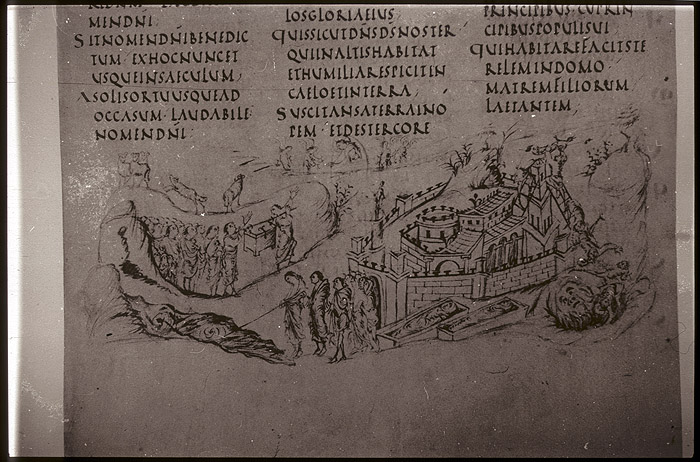 MENDNI
SITNOMENDNIBENEDIC
TUM·EXHOCNUNCET
USQUEINSAECULUM;
ASOLISORTUUSQUEAD
OCCASUM·LAUDABILE
NOMENDNI;
LOSGLORIAEIUS
QUISSICUTDNSDSNOSTER
QUIINALTISHABITAT
ETHUMILIARESPICITIN
CAELOETINTERRA;
SUSCITANSATERRAINO
PEM·ETDESTERCORE
PRINCIPIBUS·CUPRIN
CIPIBUSPOPULISUI
QUIHABITAREFACITSTE
RELEMINDOMO
MATREMFILIORUM
LAETANTEM;